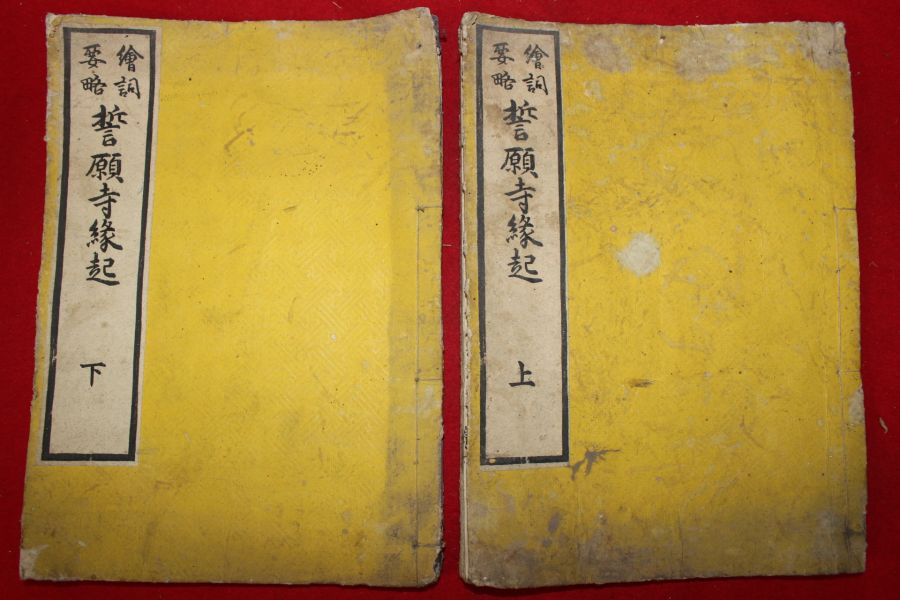 繪詞
要略
誓願寺緣起
上
繪詞
要略
誓願寺緣起
下